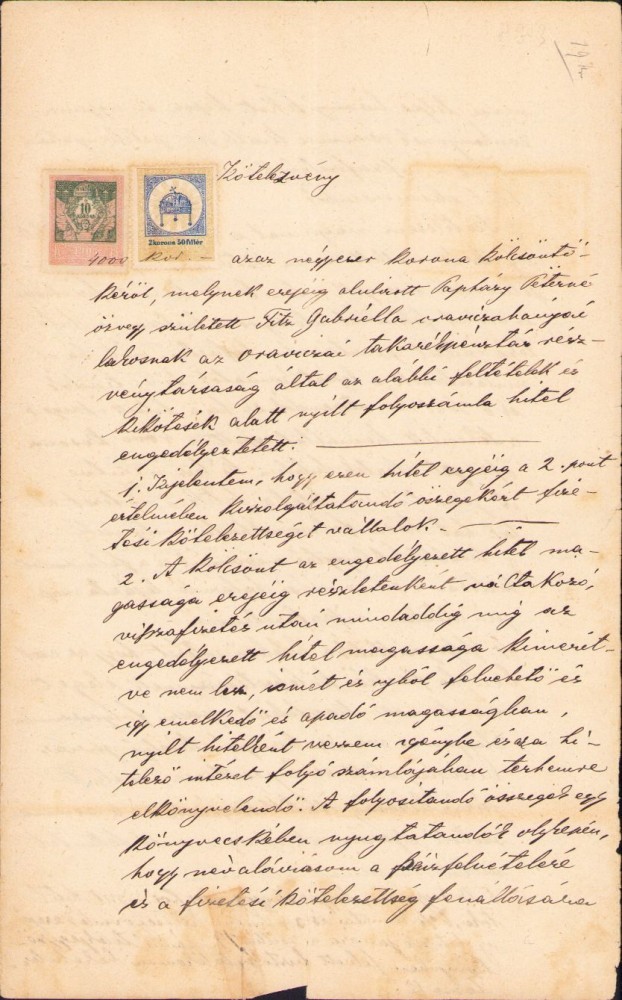 Kötelezvény
10
2 korona 50 fillér
4000 Kor. – azaz négyezer korona kölcsöntő-
kéről, melynek erejéig alulirott Papházy Péterné
özvegy született Fitz Gabriella oraviczabányai
lakosnak az oraviczai takarékpénztár rész-
vénytársaság által az alabbi feltételek és
kikötések alatt nyílt folyoszámla hitel
engedélyeztetett:
1. Kijelentem, hogy ezen hitel erejéig a 2. pont
értelmében kiszolgáltatandó összegekért fize-
tési kötelezettséget vállalok. –
2. A kölcsönt az engedélyezett hitel ma-
gassága erejéig részletenként váltakozó,
visszafizetés után mindaddig mig az
engedélyezett hitel magassága kimerít-
ve nem lesz, ismét és ujból felvehető és
igy emelkedő és apadó magasságban,
nyílt hitelként veszem igénybe és ez a hi-
telező intézet folyó számlájában terhemre
elkönyvelendő. A folyositandó összegek egy
könyvecskében nyugtatandók olyképen,
hogy névaláirásom a pénzfelvételére
és a fizetési kötelezettség fenállására